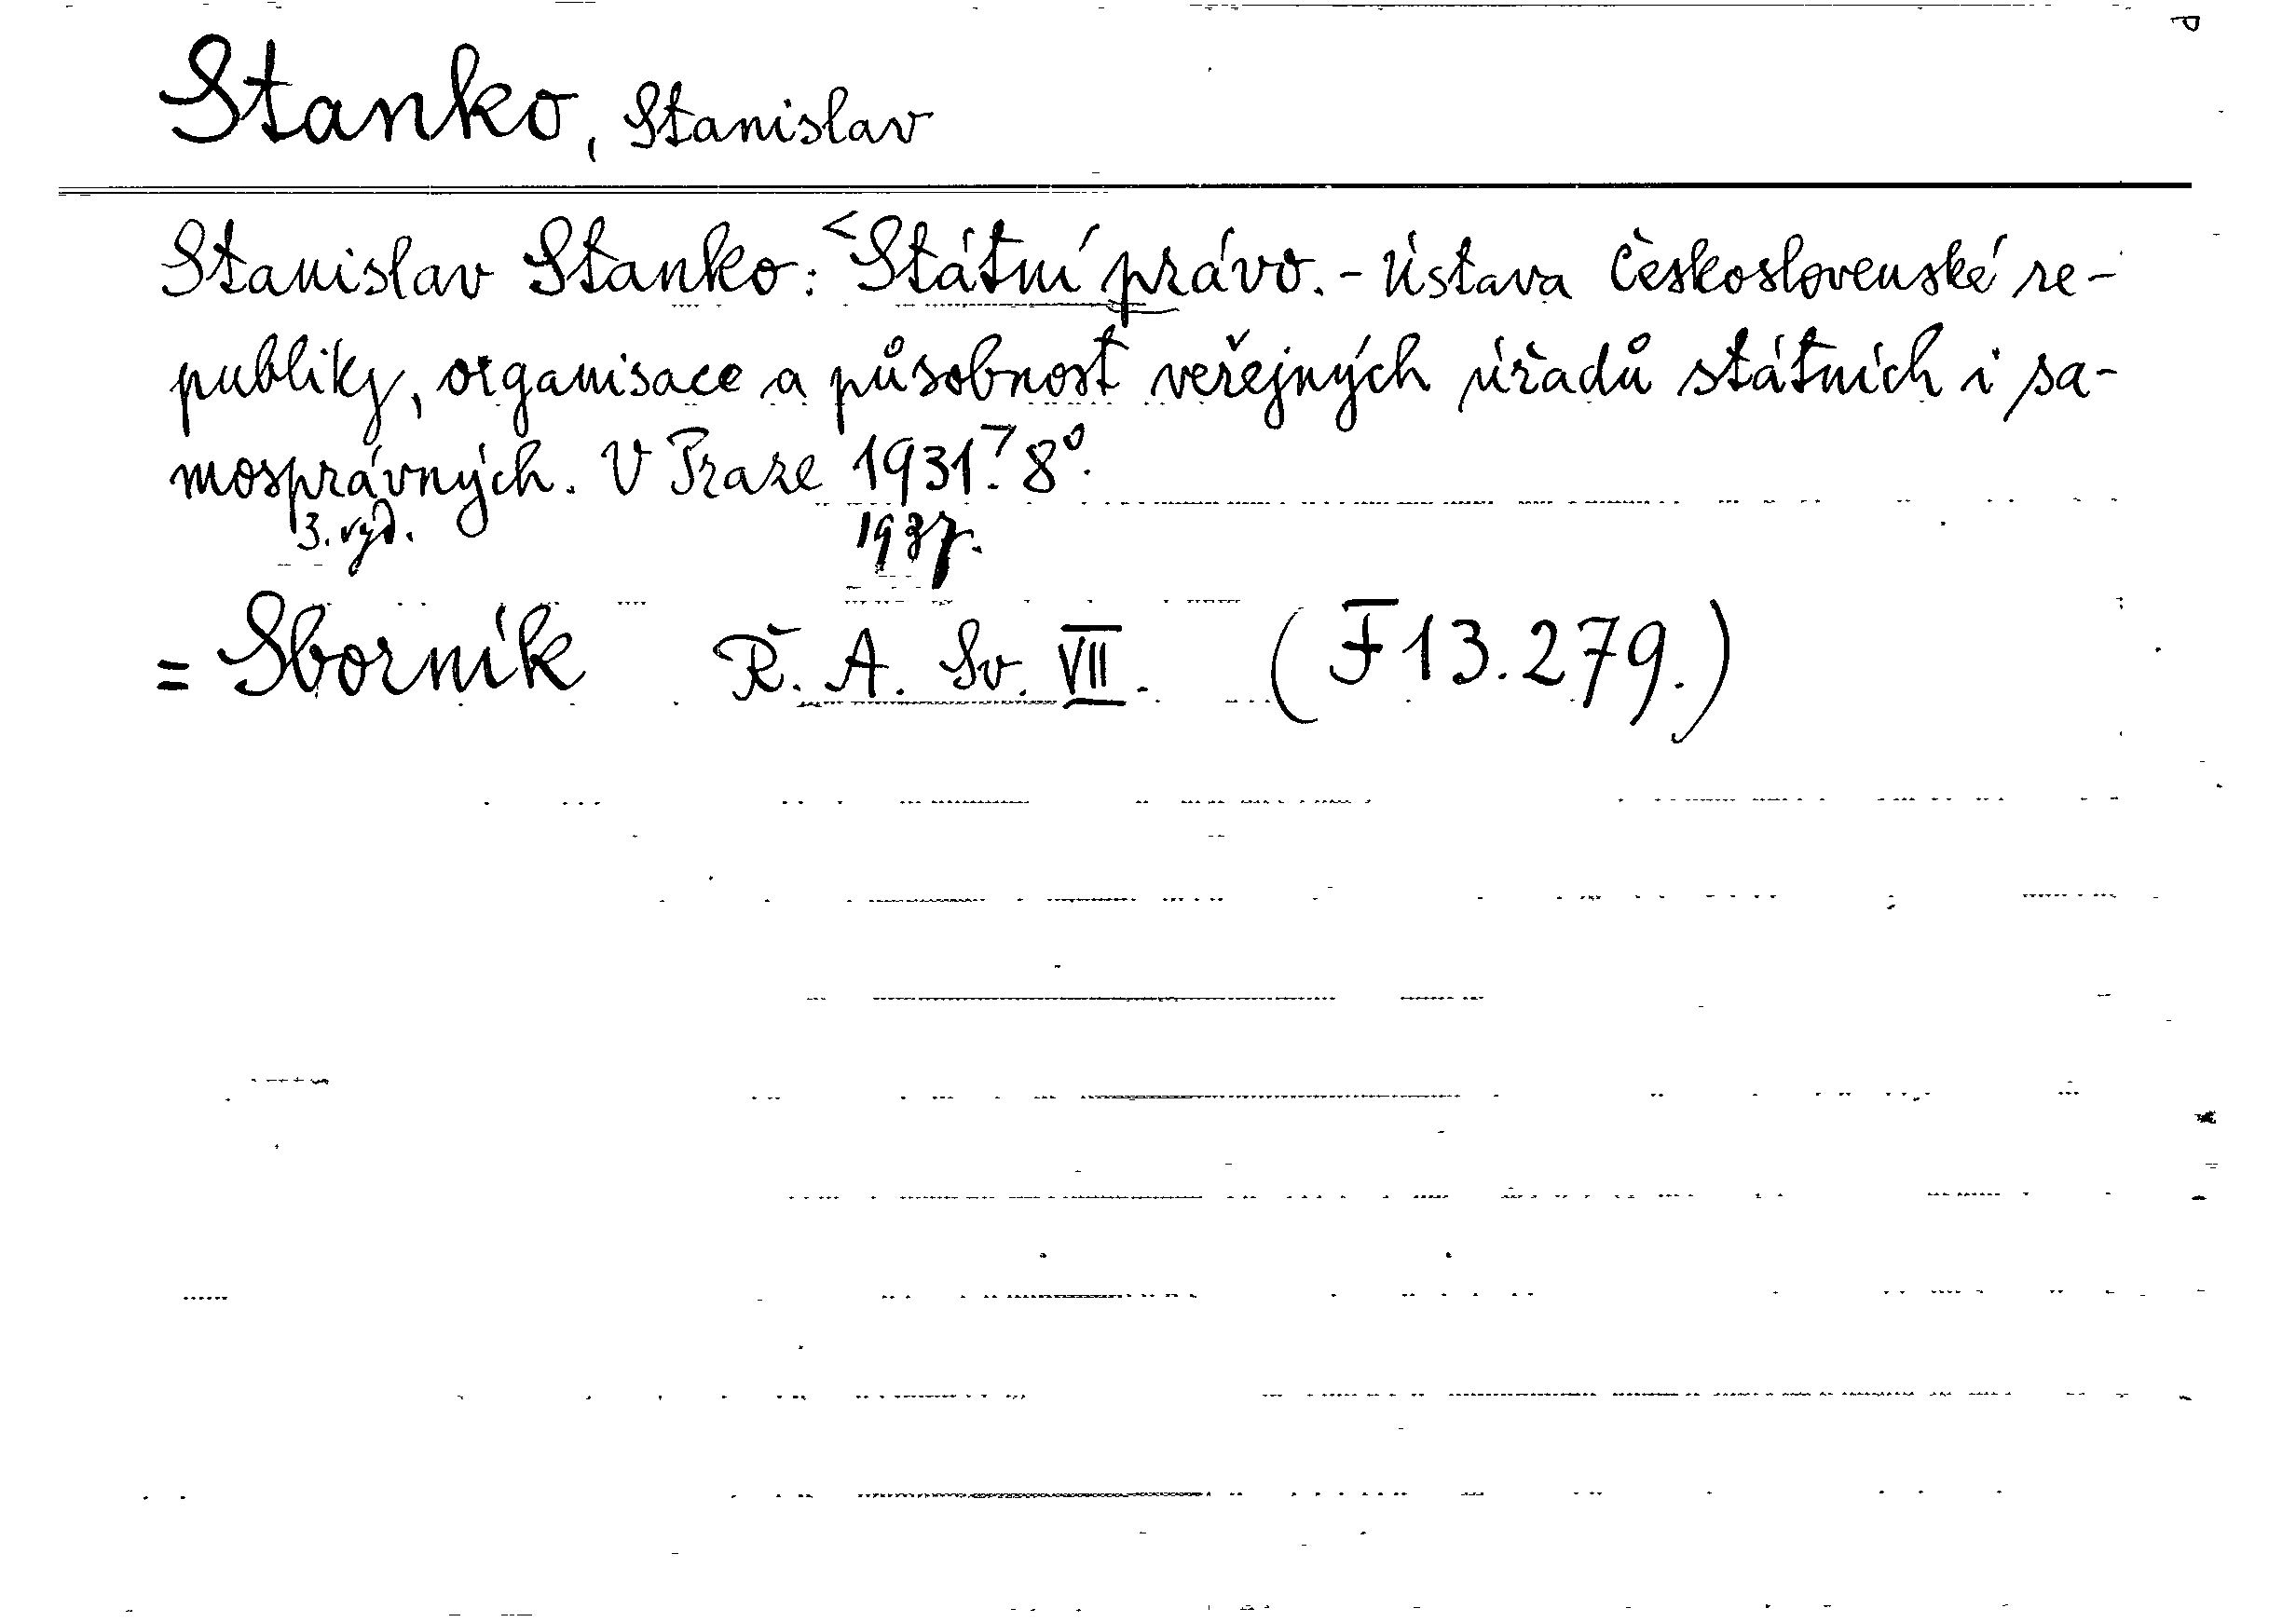 Stanko, Stanislav
Stanislav Stanko: <Státní právo. - Ústava Československé re-
publiky, organisace a působnost veřejných úřadů státních i sa-
mosprávných. V Praze 1931.> 8°.
3. vyd. 1937.
= Sborník Ř. A. Sv. VII. (F 13.279.)